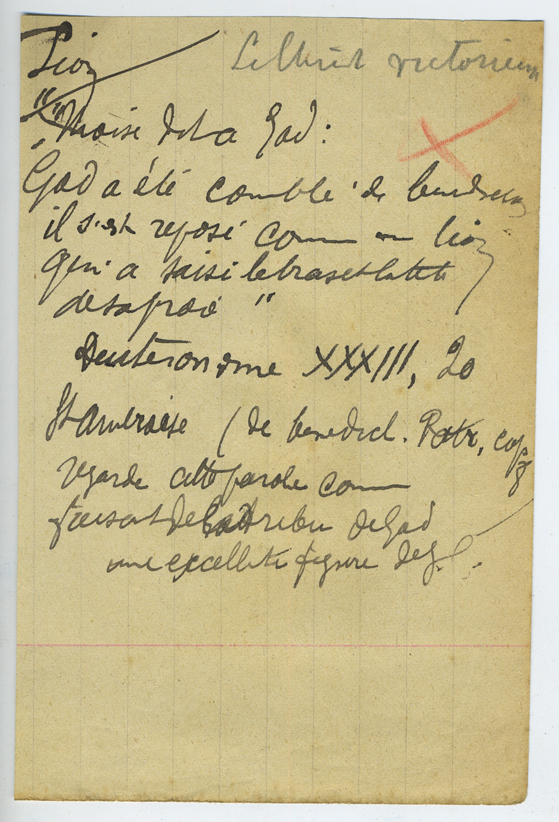 Lion
Le Christ victorieux
"Moïse dit a Gad:
Gad a été comblé de benedictions
il s'est reposé comme un lion
qui a saisi le bras et la tete
de sa proie"
Deuteronome XXXIII, 20
St Ambroise (de benedict. Patr, cap
regarde cette parole comme
faisant de la tribu de Gad
une excellente figure de J. C.